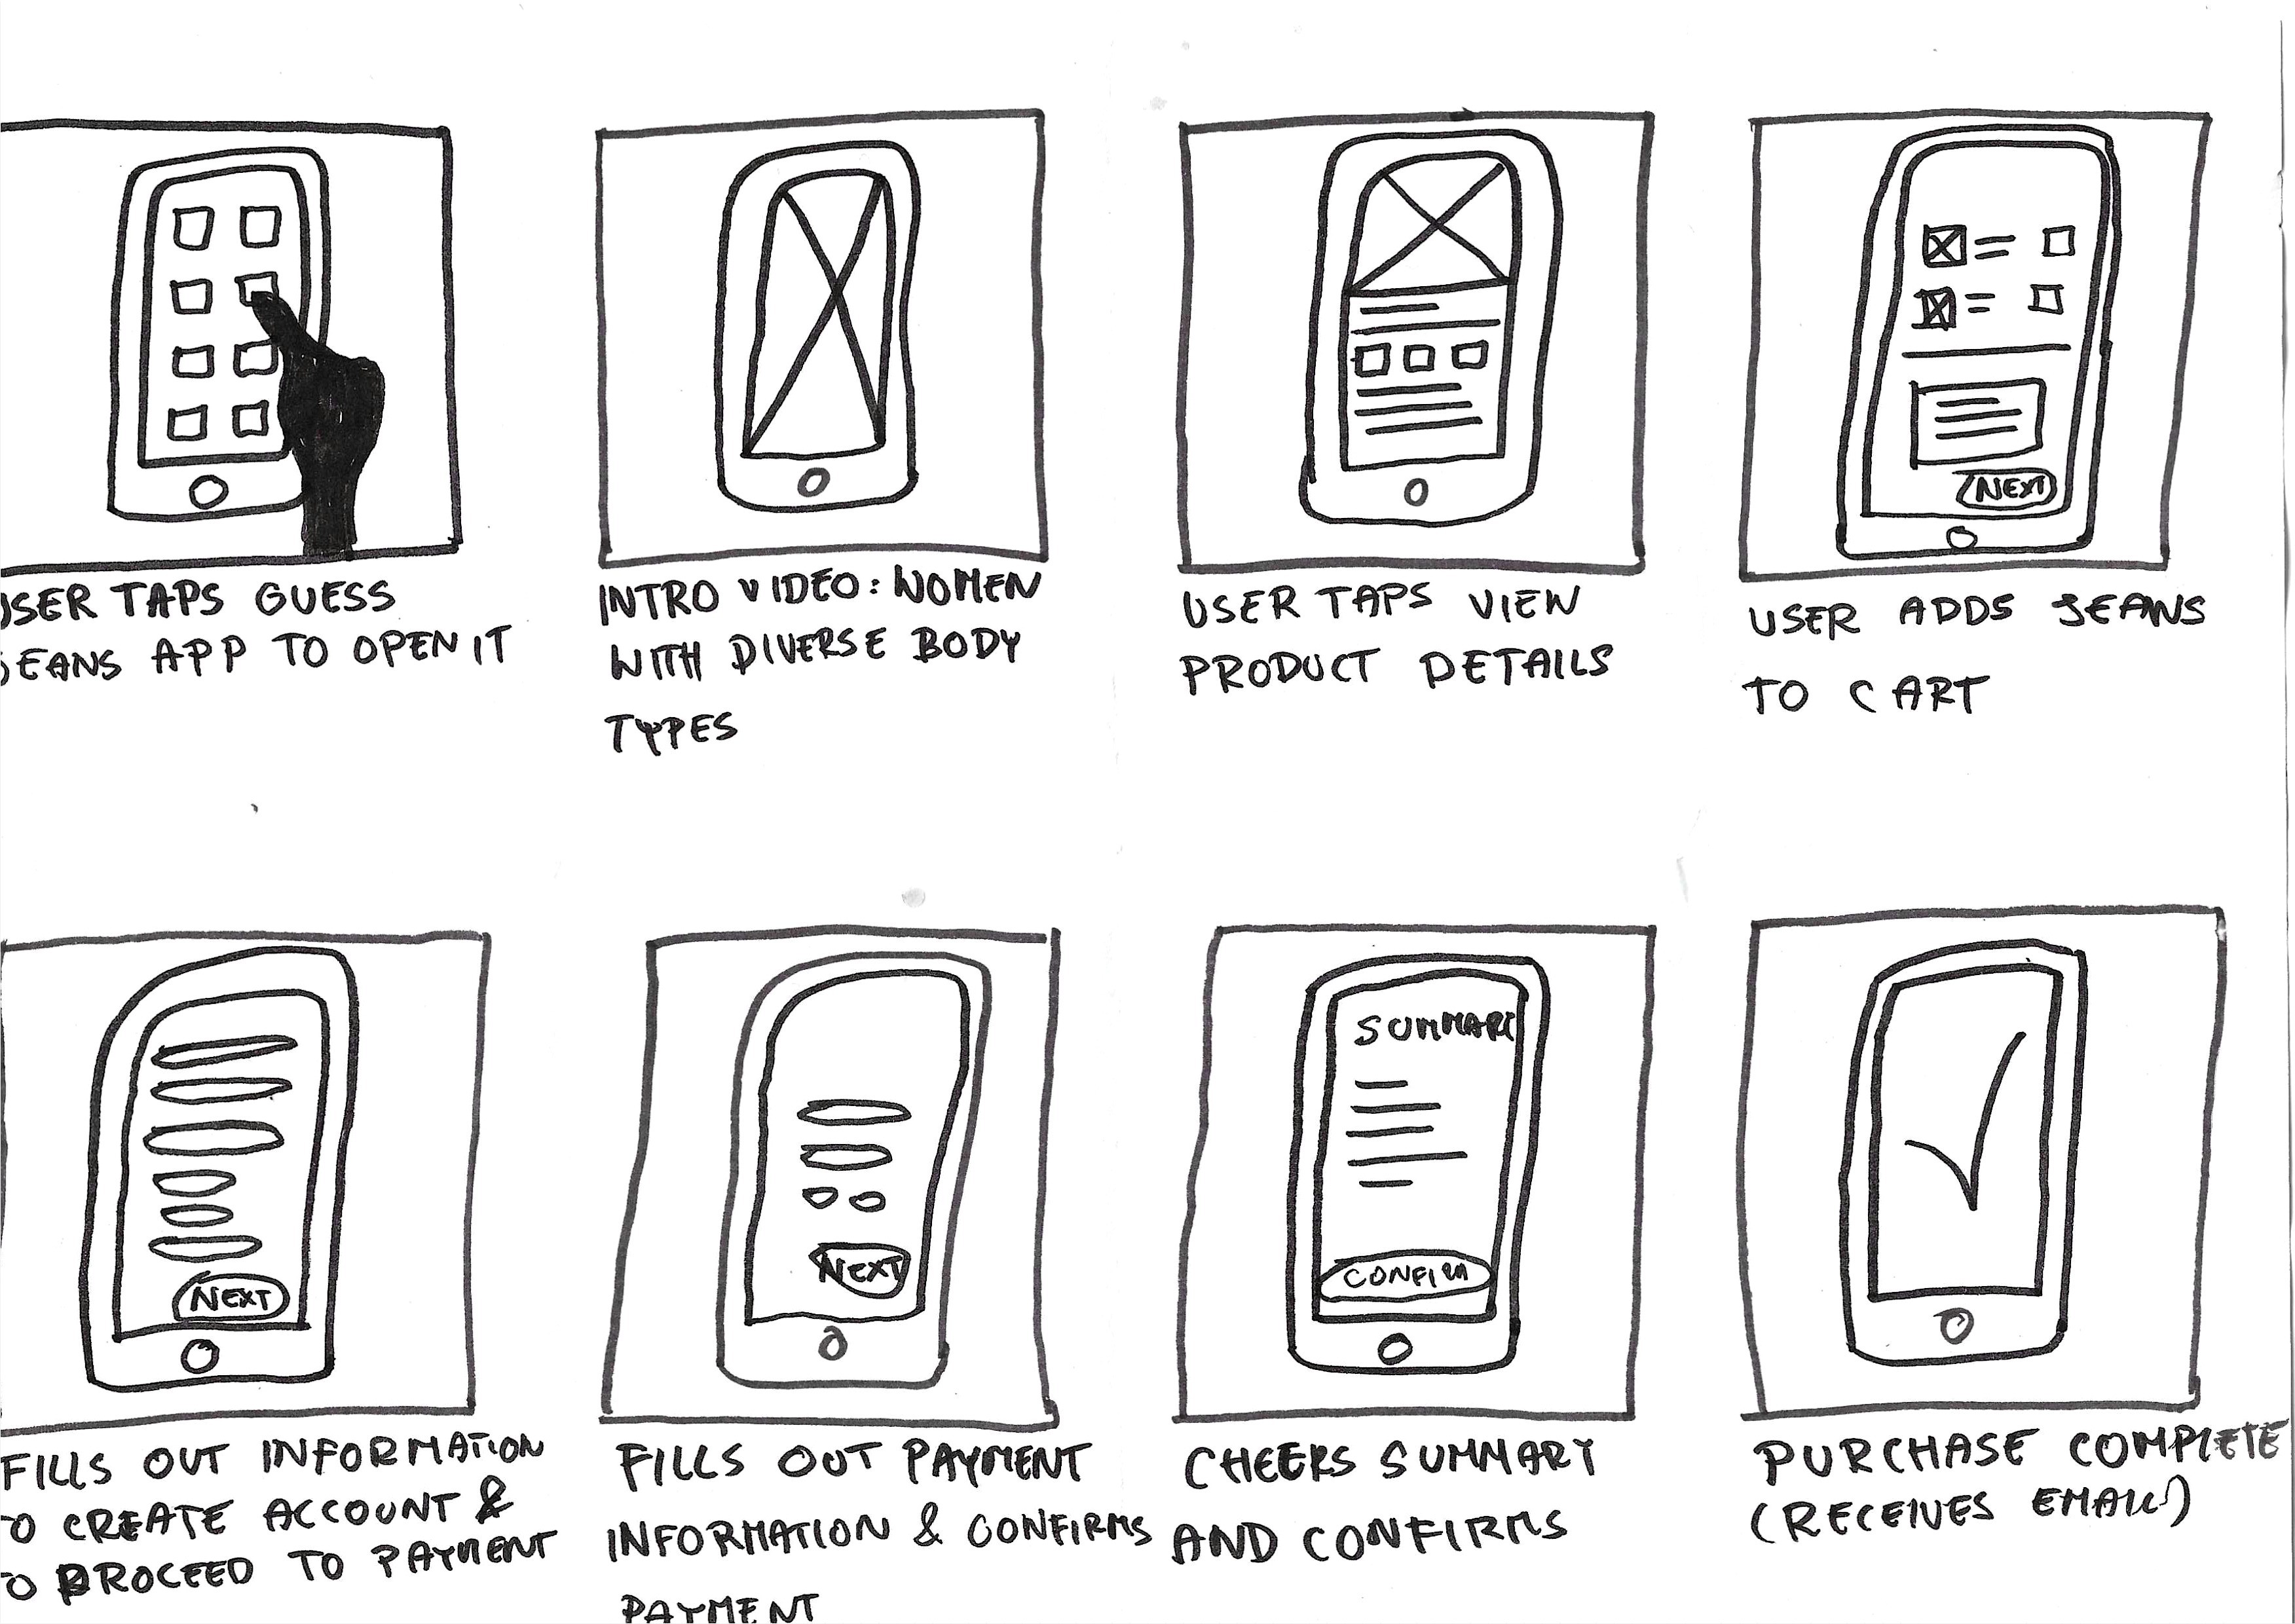 USER TAPS GUESS
JEANS APP TO OPEN IT
INTRO VIDEO: WOMEN
WITH DIVERSE BODY
TYPES
USER TAPS VIEW
PRODUCT DETAILS
NEXT
USER ADDS JEANS
TO CART
NEXT
FILLS OUT INFORMATION
TO CREATE ACCOUNT &
TO PROCEED TO PAYMENT
NEXT
FILLS OUT PAYMENT
INFORMATION & CONFIRMS
PAYMENT
SUMMARY
CONFIRM
CHEERS SUMMARY
AND CONFIRMS
PURCHASE COMPLETE
(RECEIVES EMAIL)